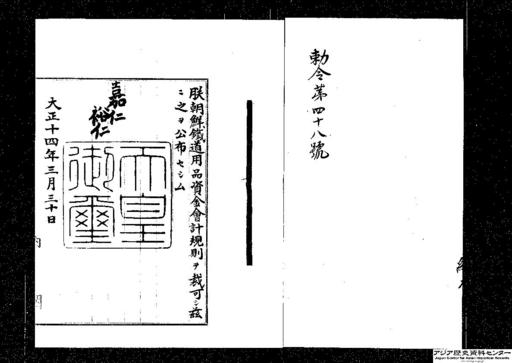 勅令第四十八號
朕朝鮮鐵道用品資金會計規則ヲ裁可シ茲
ニ之ヲ公布セシム
嘉仁
裕仁
天皇御璽
大正十四年三月三十日
内閣
アジア歴史資料センター
Japan Center for Asian Historical Records